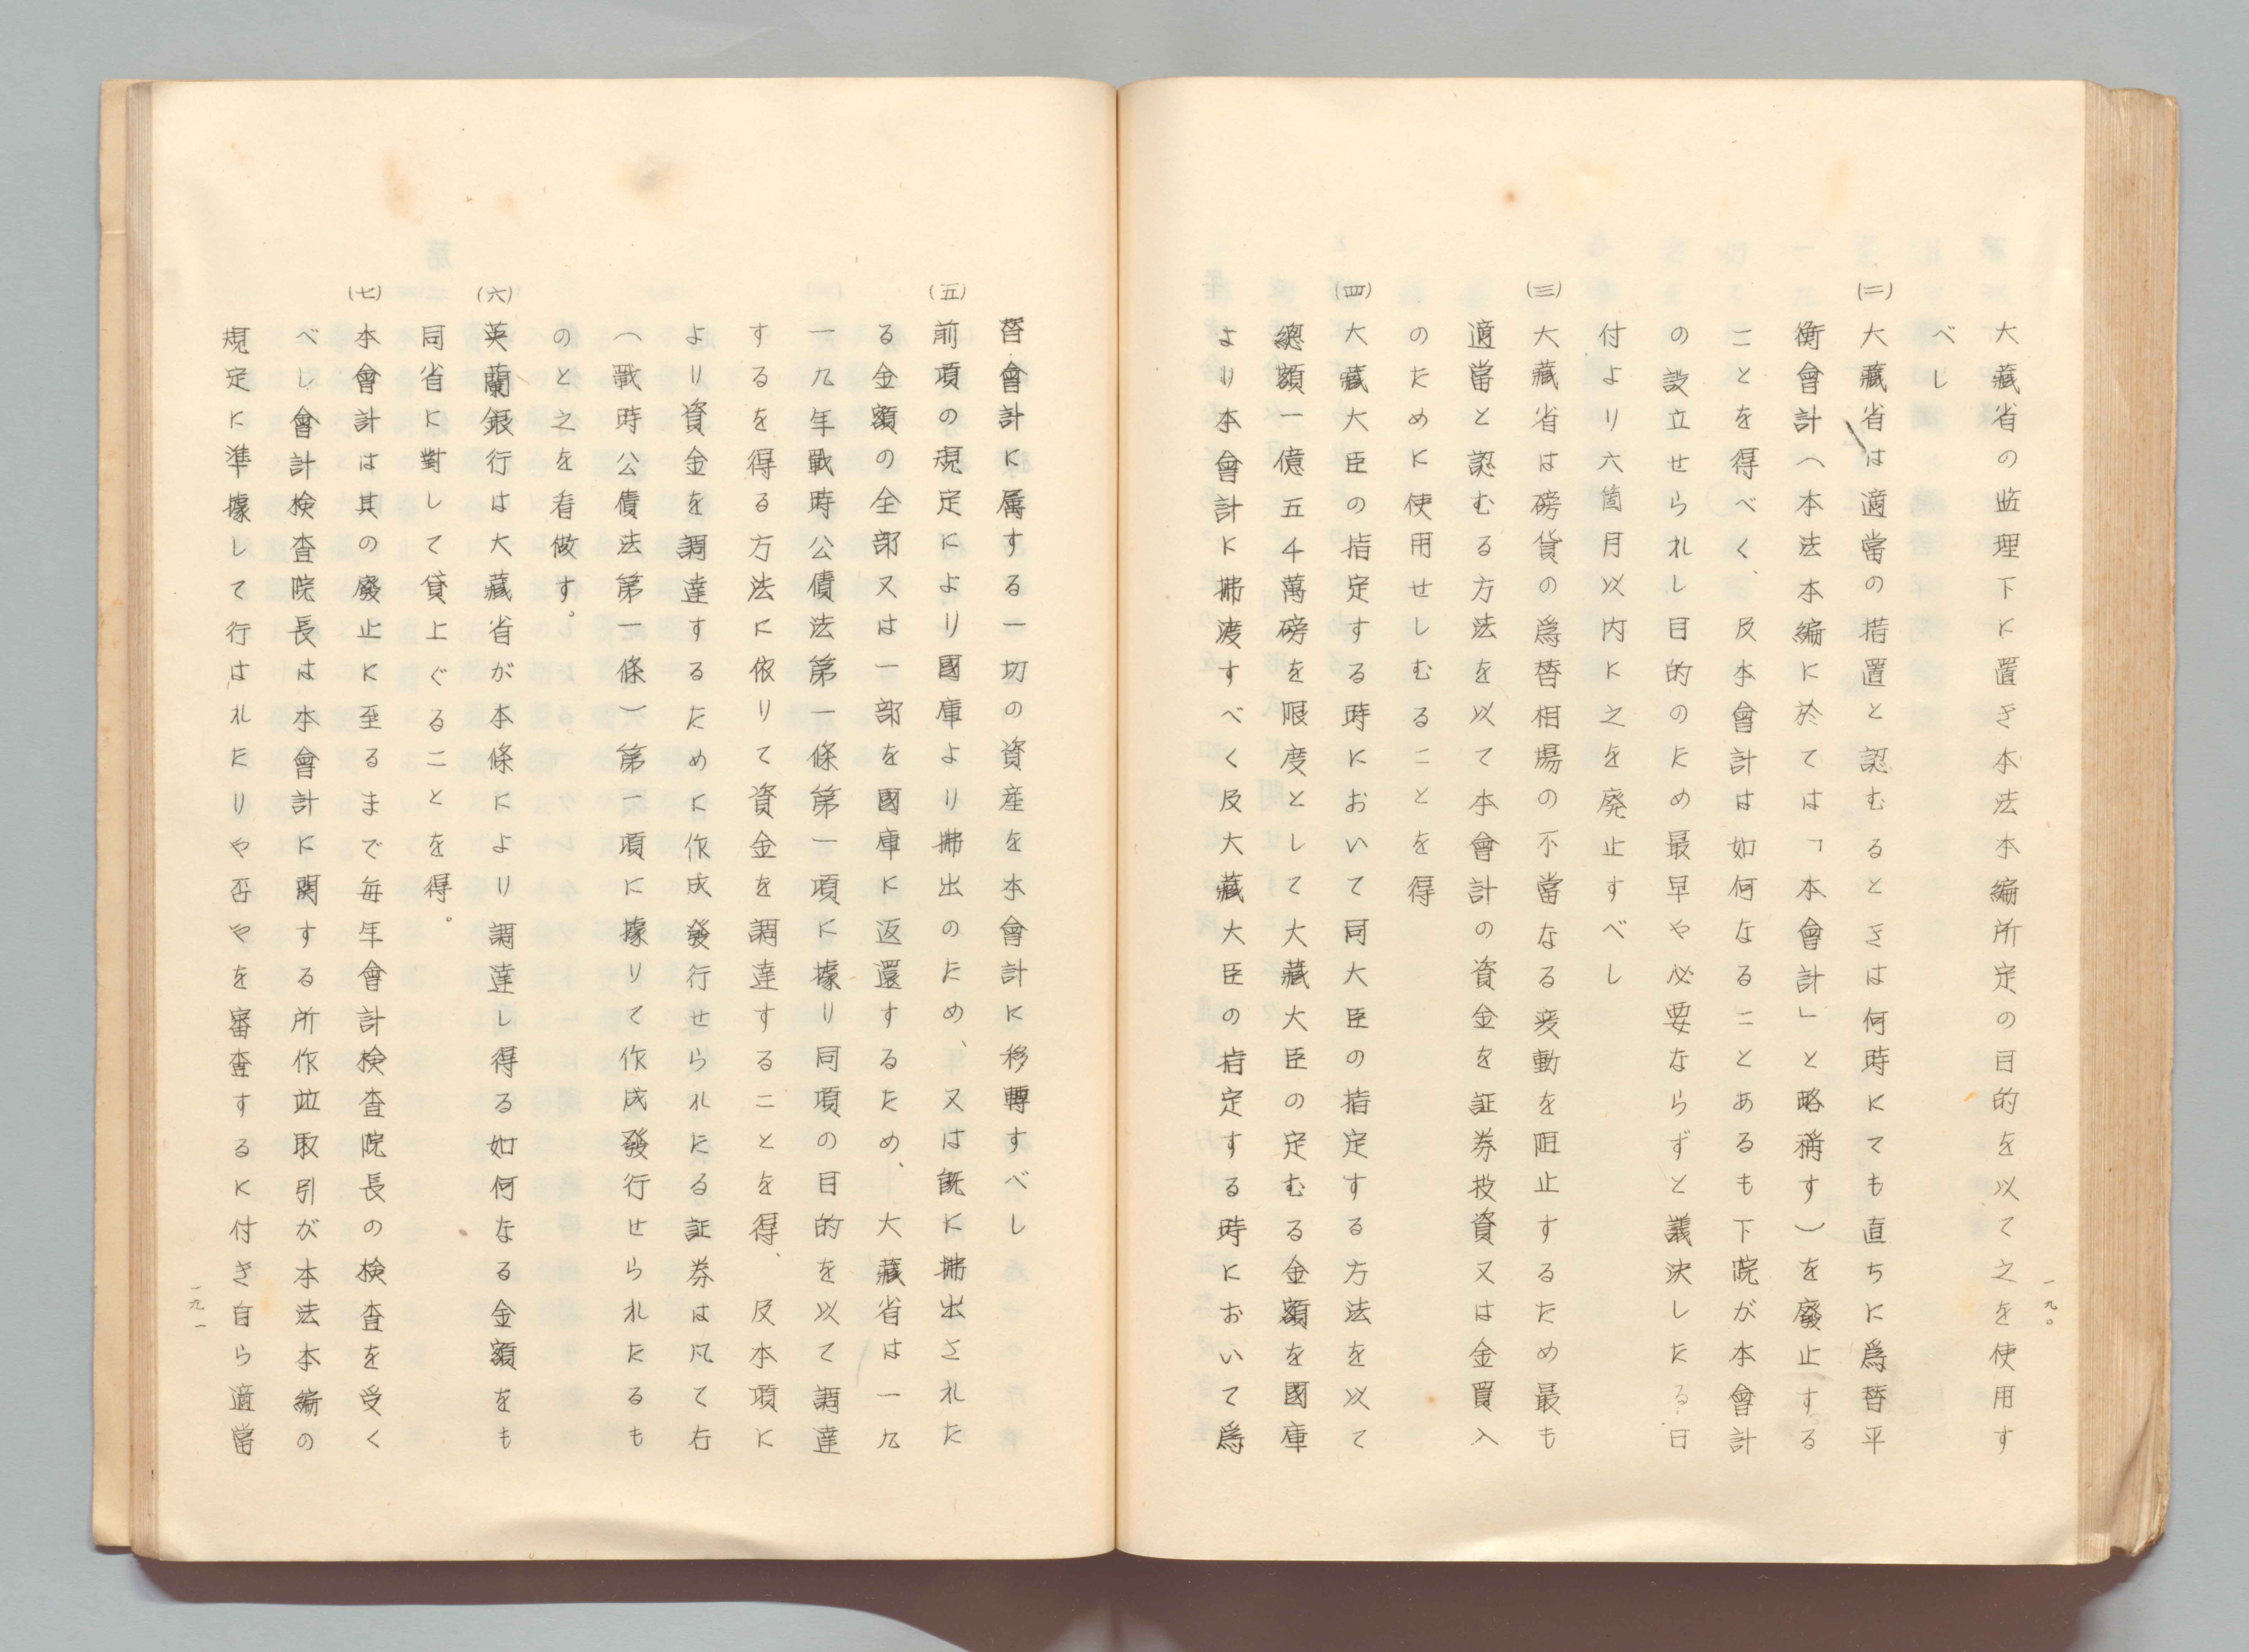 大藏省の監理下に置き本法本編所定の目的を以て之を使用す
べし
(二)大藏省は適當の措置と認むるときは何時にても直ちに爲替平
衡會計（本法本編に於ては「本會計」と略稱す）を廢止する
ことを得べく、反本會計は如何なることあるも下院が本會計
の設立せられし目的のため最早や必要ならずと議決したる日
付より六箇月以内に之を廃止すべし
(三)大藏省は磅貨の爲替相場の不當なる変動を阻止するため最も
適當と認むる方法を以て本會計の資金を証券投資又は金買入
のために使用せしむることを得
(四)大藏大臣の指定する時において同大臣の指定する方法を以て
總額一億五千萬磅を限度として大藏大臣の定むる金額を國庫
より本會計に拂渡すべく及大藏大臣の指定する時において爲
一九〇
替會計に属する一切の資産を本會計に移轉すべし
(五)前項の規定により國庫より拂出のため、又は既に拂出された
る金額の全部又は一部を國庫に返還するため、大藏省は一九
一九年戰時公債法第一條第一項に據り同項の目的を以て調達
するを得る方法に依りて資金を調達することを得、反本項に
より資金を調達するために作成發行せられたる証券は凡て右
（戰時公債法第一條）第一項に據りて作成發行せられたるも
のと之を看做す。
(六)英蘭銀行は大藏省が本條により調達し得る如何なる金額をも
同省に對して貸上ぐることを得。
(七)本會計は其の廢止に至るまで毎年會計検査院長の検査を受く
べし會計検査院長は本會計に関する所作竝取引が本法本編の
規定に準據して行はれたりや否やを審査するに付き自ら適當
一九一